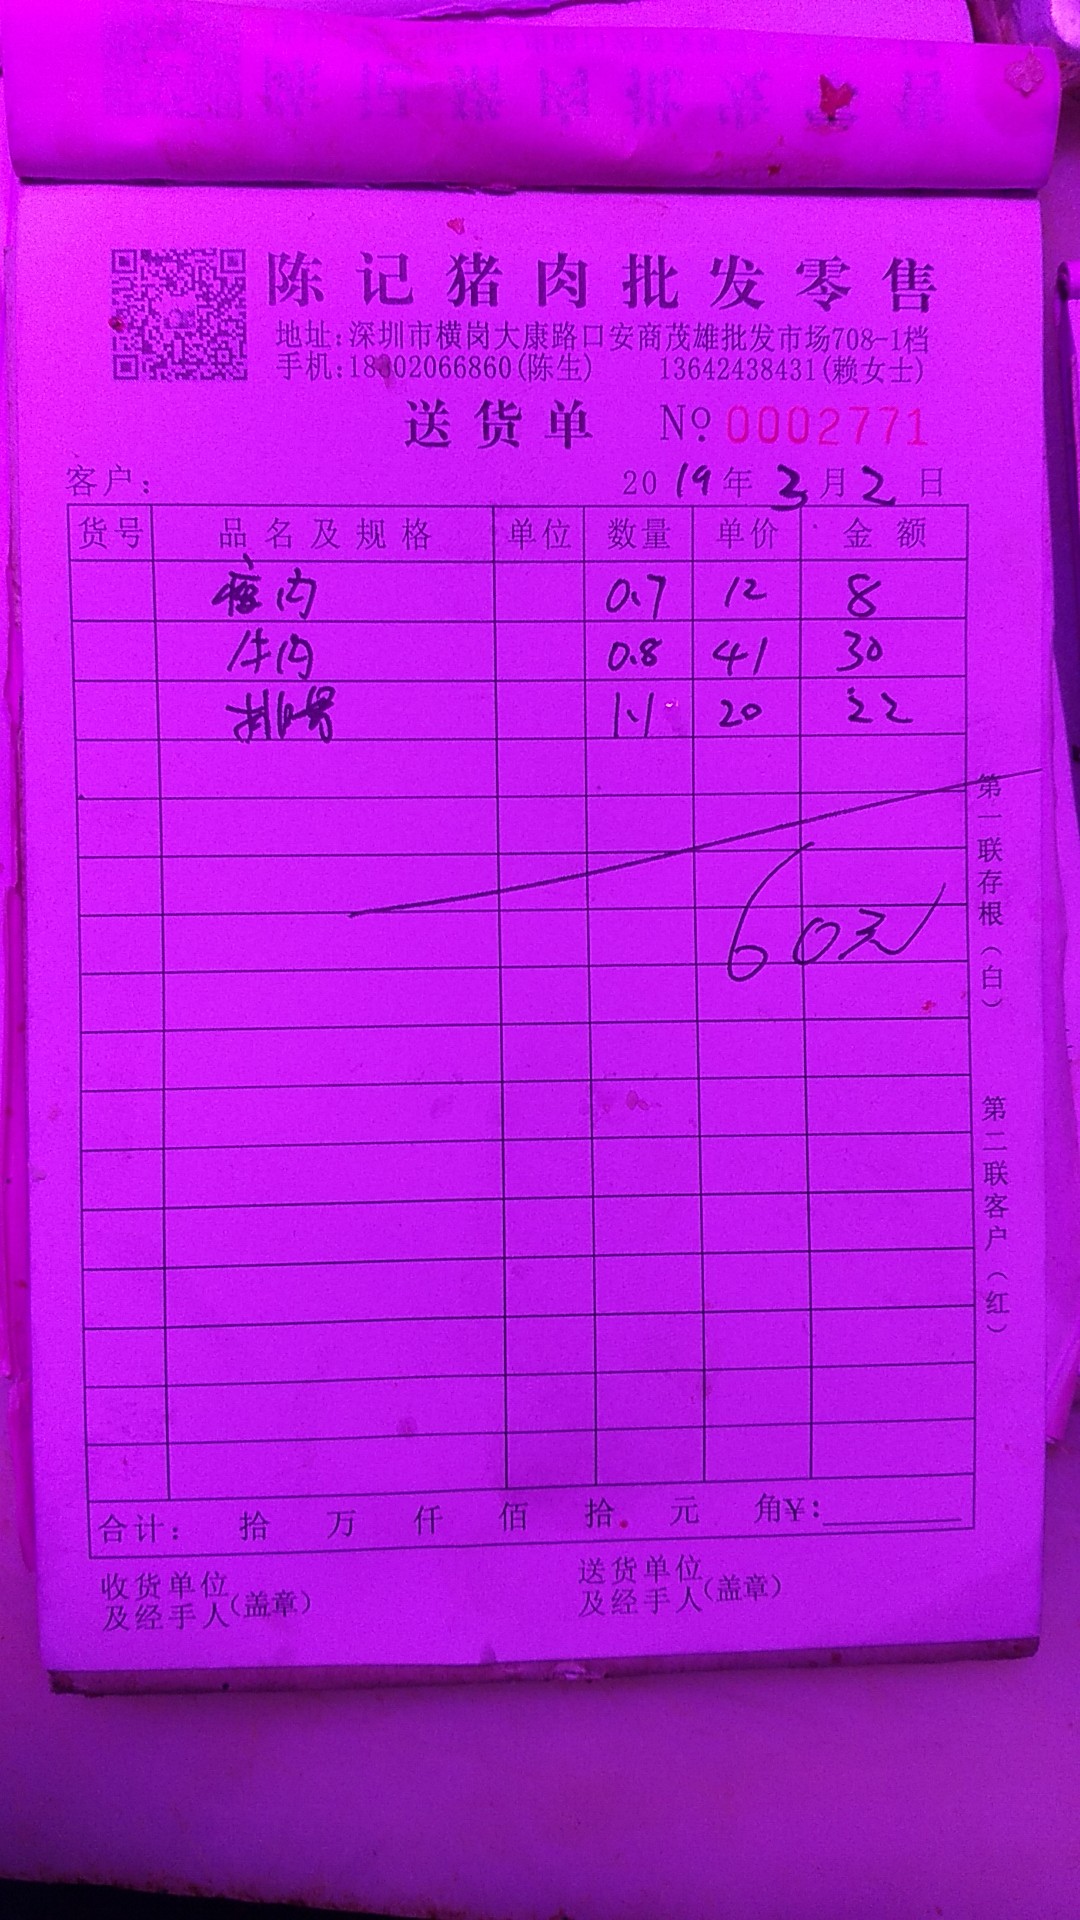 陈记猪肉批发零售
地址:深圳市横岗大康路口安商茂雄批发市场708-1档
手机:18302066860(陈生) 13642438431(赖女士)
送货单 №:0002771
客户: 2019年3月2日
货号 品名及规格 单位 数量 单价 金额
瘦肉 0.7 12 8
牛肉 0.8 41 30
排骨 1.1 20 22
60元
合计: 拾 万 仟 佰 拾 元 角¥:
收货单位及经手人(盖章) 送货单位及经手人(盖章)
第一联存根(白)
第二联客户(红)